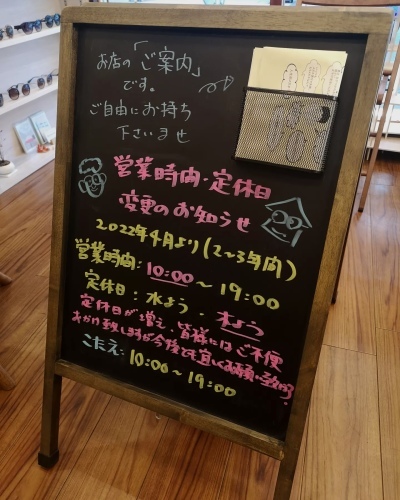 お店の「ご案内」
です。
ご自由にお持ち
下さいませ
営業時間・定休日
変更のお知らせ
2022年4月より(2〜3年内)
営業時間:10:00〜19:00
定休日:水よう・木よう
定休日が増え、皆様にはご不便
おかけ致しますが今後とも宜しくお願い致します
こたえ:10:00〜19:00